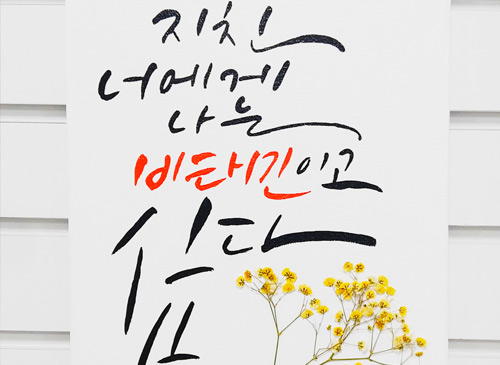 지친
너에게
나는
비타민이고
싶다